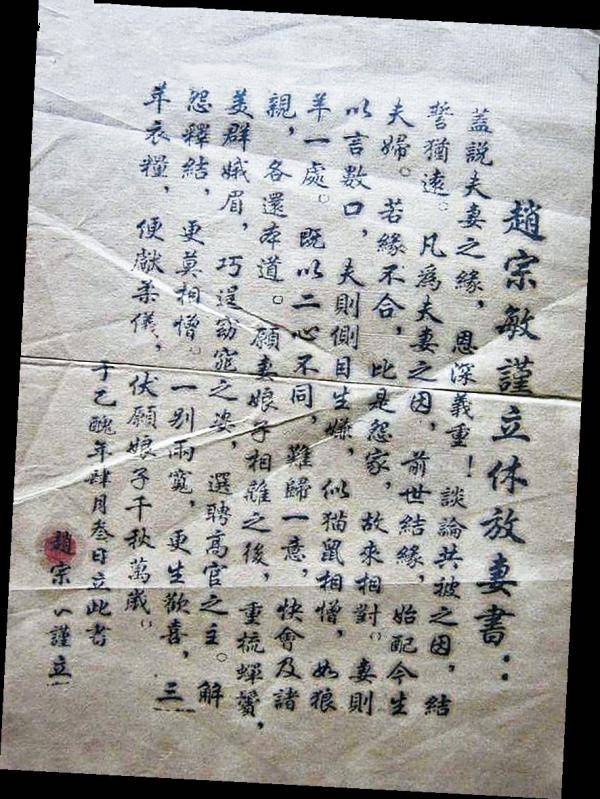 趙宗敏謹立休放妻書：
蓋説夫妻之緣，恩深義重！談論共被之因，結
誓猶遠。凡為夫妻之因，前世結緣，始配今生
夫婦。若緣不合，此是怨家，故來相對。妻則
以言數口，夫則側目生嫌，似猫鼠相憎，如狼
羊一處。既以二心不同，難歸一意，快會及諸
親，各還本道。願妻娘子相離之後，重梳蟬鬢，
美群娥眉，巧逞窈窕之姿，選聘高官之主。解
怨釋結，更莫相憎。一别兩寬，更生歡喜，三
年衣糧，便獻柔儀，伏願娘子千秋萬歲。
于乙醜年肆月叁日立此書
趙宗 謹立